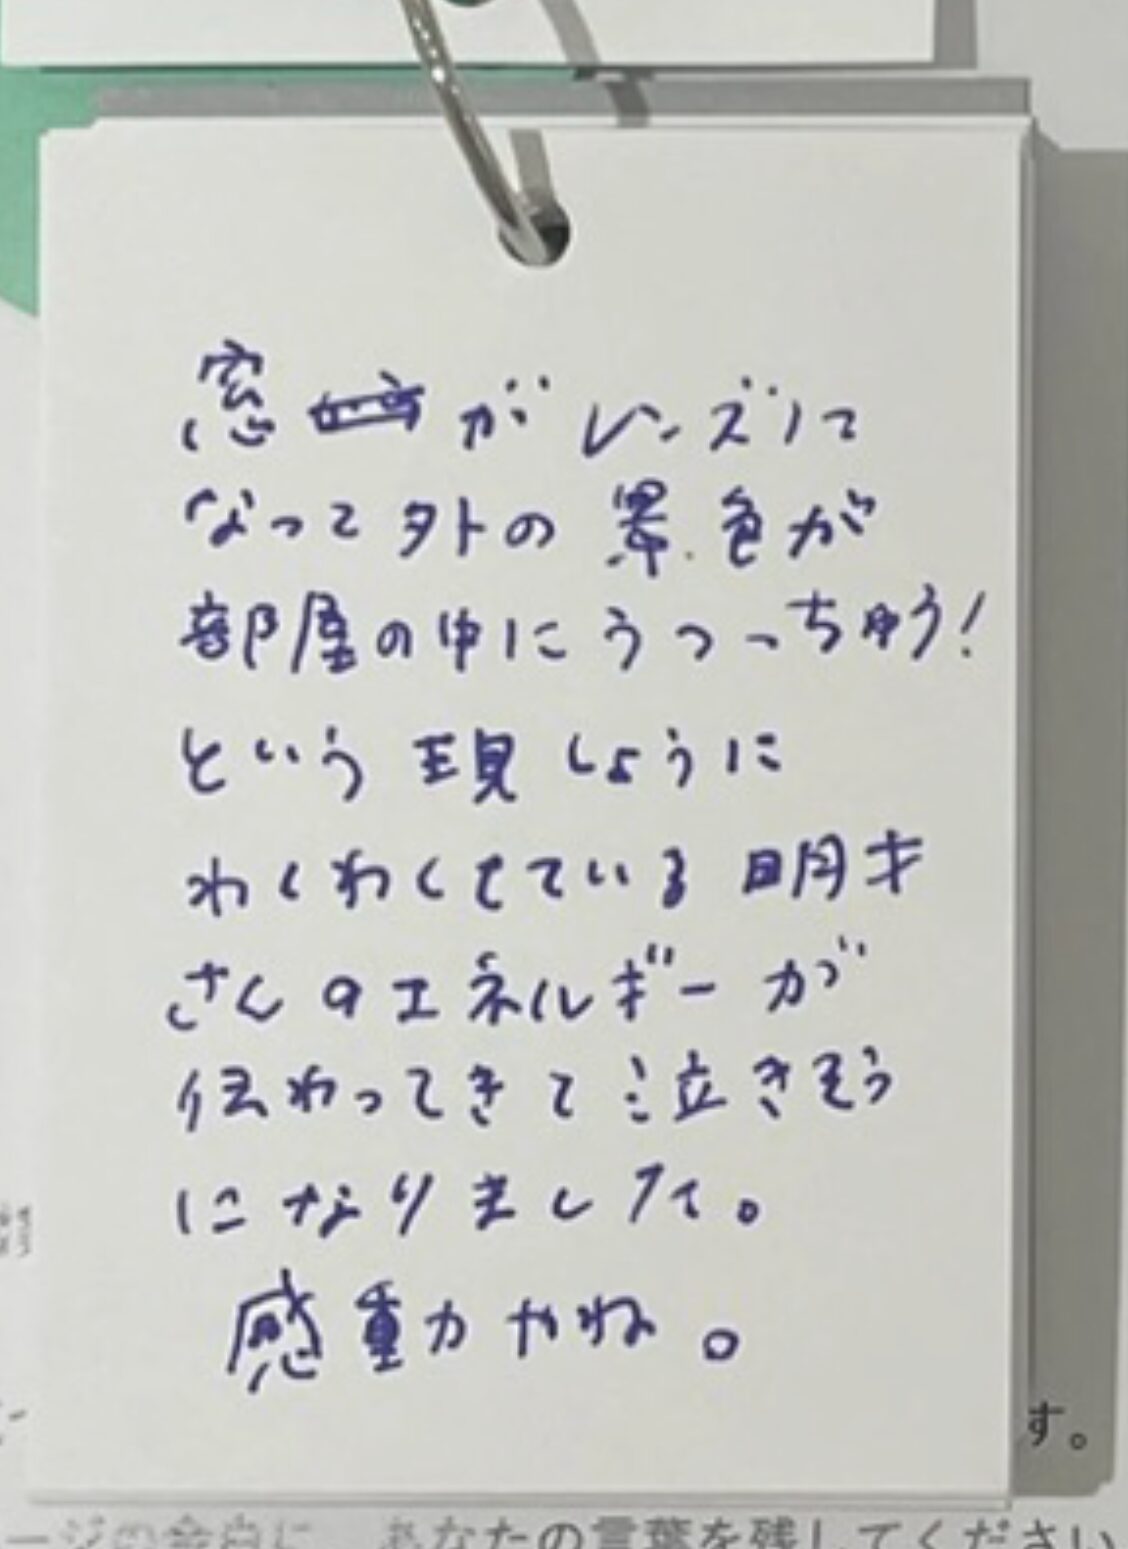 窓がレンズに
なって外の景色が
部屋の中にうつっちゃう！
という現しょうに
わくわくしている明才
さんのエネルギーが
伝わってきて泣きそう
になりました。
感動やね。
す。
ージの余白に、あなたの言葉を残してください